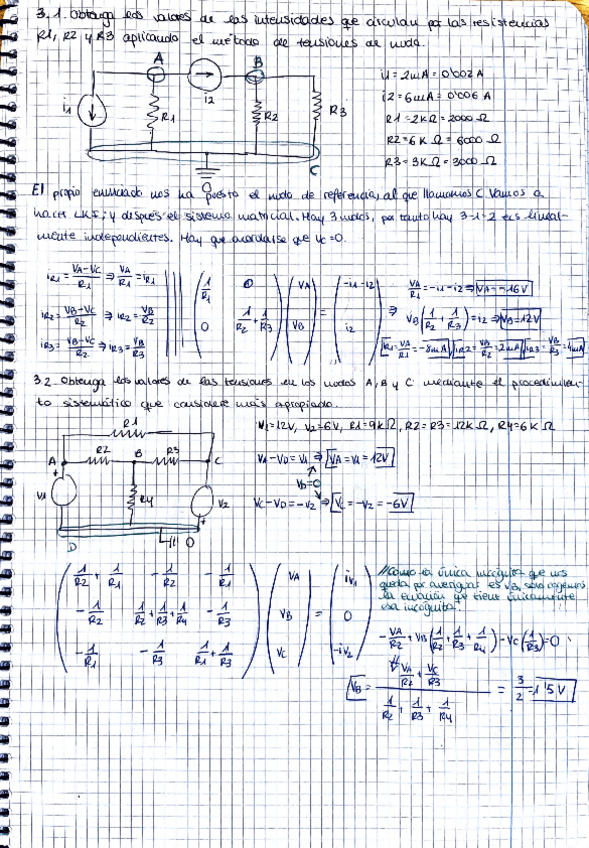 3.1. Obtenga los valores de las intensidades que circulan por las resistencias
R1, R2 y R3 aplicando el método de tensiones de nudo.
A
B
i1
R1
i2
R2
R3
C
0
i1 = 2mA = 0'002 A
i2 = 6mA = 0'006 A
R1 = 2kΩ = 2000 Ω
R2 = 6kΩ = 6000 Ω
R3 = 3kΩ = 3000 Ω
El propio enunciado nos ha puesto el nudo de referencia, al que llamamos C. Vamos a
hacer LKI, y después el sistema matricial. Hay 3 nudos, por tanto hay 3-1=2 ecs lineal-
mente independientes. Hay que acordarse que Vc=0.
iR1 = (VA-VC)/R1 ⇒ VA/R1 = iR1
iR2 = (VB-VC)/R2 ⇒ iR2 = VB/R2
iR3 = (VB-VC)/R2 ⇒ iR3 = VB/R3
(1/R1 0) (VA) = (-i1-i2)
(0 1/R2+1/R3) (VB) (i2)
⇒ VA/R1 = -i1-i2 ⇒ VA = -16V
VB(1/R2+1/R3) = i2 ⇒ VB = 12V
iR1 = VA/R1 = -8mA iR2 = VB/R2 = 2mA iR3 = VB/R3 = 4mA
3.2. Obtenga los valores de las tensiones en los nudos A, B y C mediante el procedimien-
to sistemático que considere más apropiado.
V1=12V, V2=6V, R1=9kΩ, R2=R3=12kΩ, R4=6kΩ
R1
A
R2
B
R3
C
+
V1
R4
V2
+
D
0
VA-VD = V1 ⇒ VA = V1 = 12V
VD=0
VC-VD = -V2 ⇒ VC = -V2 = -6V
(1/R2+1/R1 -1/R2 -1/R1) (VA) = (iV1)
(-1/R2 1/R2+1/R3+1/R4 -1/R3) (VB) (0)
(-1/R1 -1/R3 1/R1+1/R3) (VC) (-iV2)
//Como la única incógnita que nos
queda por averiguar es VB, solo cogemos
la ecuación que tiene únicamente
esa incógnita.
-VA/R2 + VB(1/R2+1/R3+1/R4) - VC(1/R3) = 0
VB = (VA/R2+VC/R3)/(1/R2+1/R3+1/R4) = 3/2 = 1'5 V